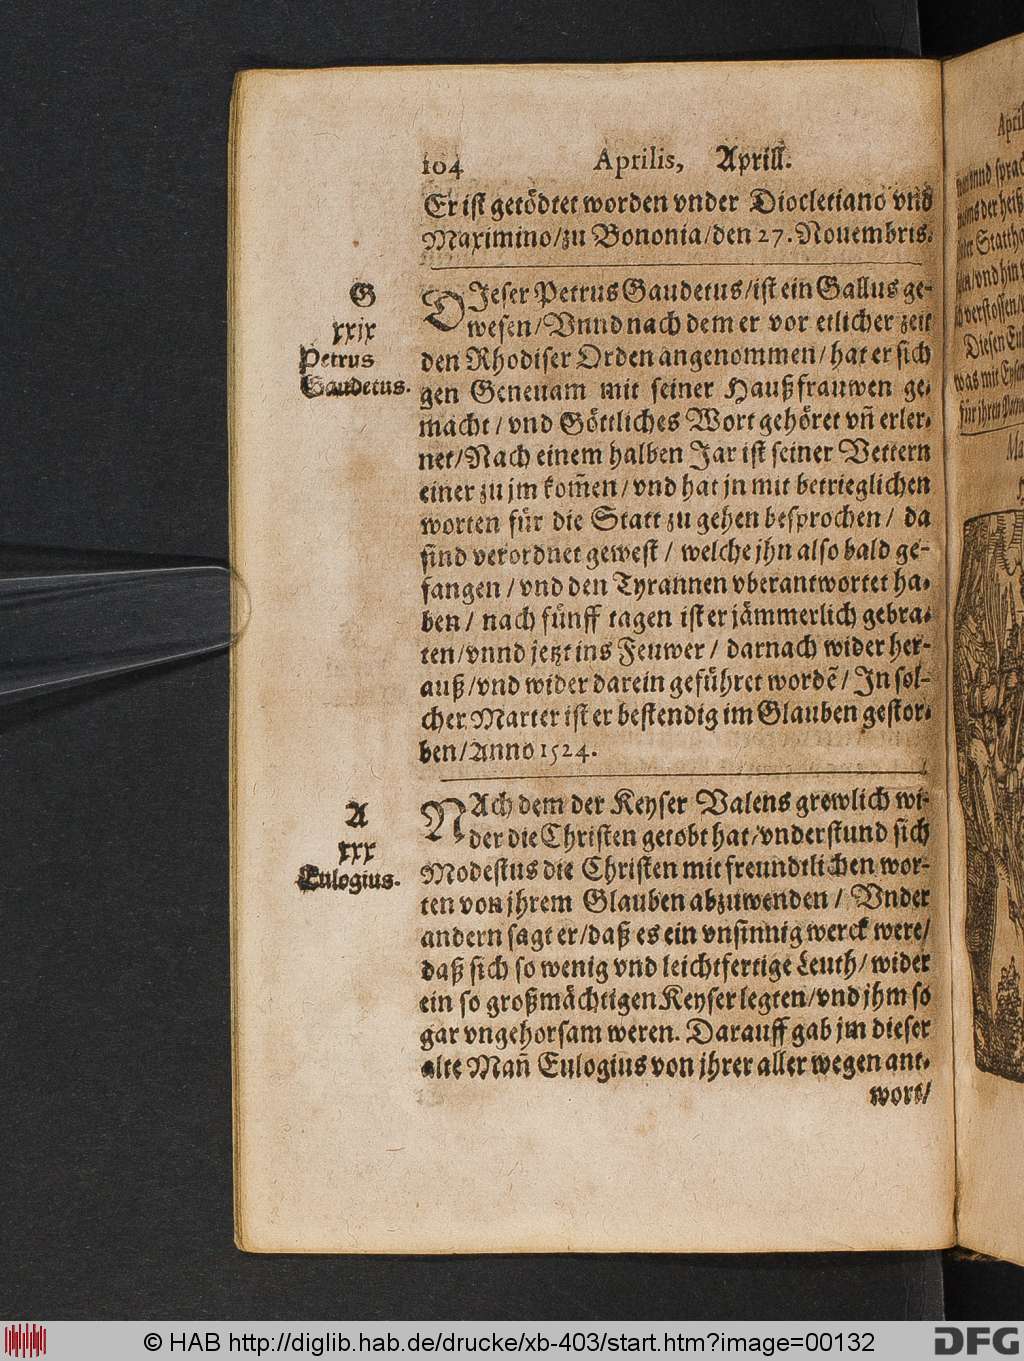 104 Aprilis, Aprill.
Er ist getödtet worden vnder Diocletiano vnd
Maximino/zu Bononia/den 27. Nouembris.
G
xxix
Petrus
Gaudetus.
DIeser Petrus Gaudetus/ist ein Gallus ge-
wesen/Vnnd nach dem er vor etlicher zeit
den Rhodiser Orden angenommen/hat er sich
gen Geneuam mit seiner Haußfrauwen ge-
macht/vnd Göttliches Wort gehöret vñ erler-
net/Nach einem halben Jar ist seiner Vettern
einer zu jm kom̃en/vnd hat jn mit betrieglichen
worten für die Statt zu gehen besprochen/ da
sind verordnet gewest/ welche jhn also bald ge-
fangen/vnd den Tyrannen vberantwortet ha-
ben/ nach fünff tagen ist er jämmerlich gebra-
ten/vnnd jetzt ins Feuwer/ darnach wider her-
auß/vnd wider darein geführet wordẽ/In sol-
cher Marter ist er bestendig im Glauben gestor-
ben/Anno 1524.
A
xxx
Eulogius.
NAch dem der Keyser Valens grewlich wi-
der die Christen getobt hat/vnderstund sich
Modestus die Christen mit freundtlichen wor-
ten von jhrem Glauben abzuwenden/ Vnder
andern sagt er/daß es ein vnsinnig werck were/
daß sich so wenig vnd leichtfertige Leuth/wider
ein so großmächtigen Keyser legten/vnd jhm so
gar vngehorsam weren. Darauff gab jm dieser
alte Mañ Eulogius von jhrer aller wegen ant-
wort/
© HAB http://diglib.hab.de/drucke/xb-403/start.htm?image=00132
DFG